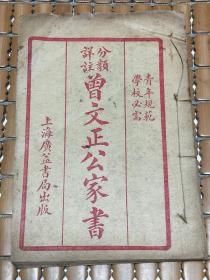 青年規範
學校必需
分類
詳註
曾文正公家書
上海廣益書局出版